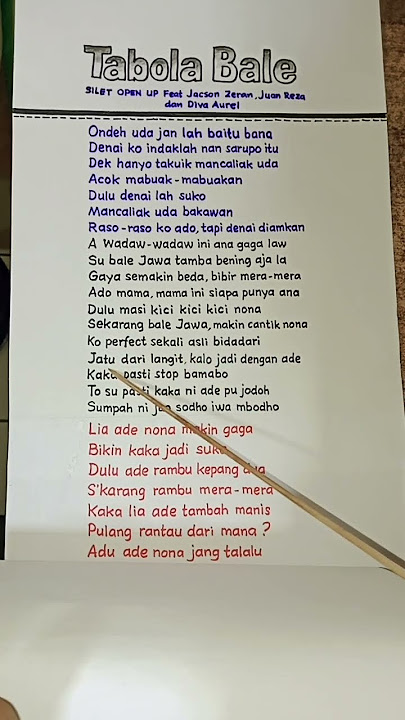 Tabola Bale
SILET OPEN UP Feat Jacson Zeran, Juan Reza
dan Diva Aurel
Ondeh uda jan lah baitu bana
Denai ko indaklah nan sarupo itu
Dek hanyo takuik mancaliak uda
Acok mabuak-mabuakan
Dulu denai lah suko
Mancaliak uda bakawan
Raso-raso ko ado, tapi denai diamkan
A Wadaw-wadaw ini ana gaga law
Su bale Jawa tamba bening aja la
Gaya semakin beda, bibir mera-mera
Ado mama, mama ini siapa punya ana
Dulu masi kici kici kici nona
Sekarang bale Jawa, makin cantik nona
Ko perfect sekali asli bidadari
Jatu dari langit, kalo jadi dengan ade
Kaka pasti stop bamabo
To su pasti kaka ni ade pu jodoh
Sumpah ni sodho iwa mbodho
Lia ade nona makin gaga
Bikin kaka jadi suka
Dulu ade rambu kepang dua
S'karang rambu mera-mera
Kaka lia ade tambah manis
Pulang rantau dari mana ?
Adu ade nona jang talalu